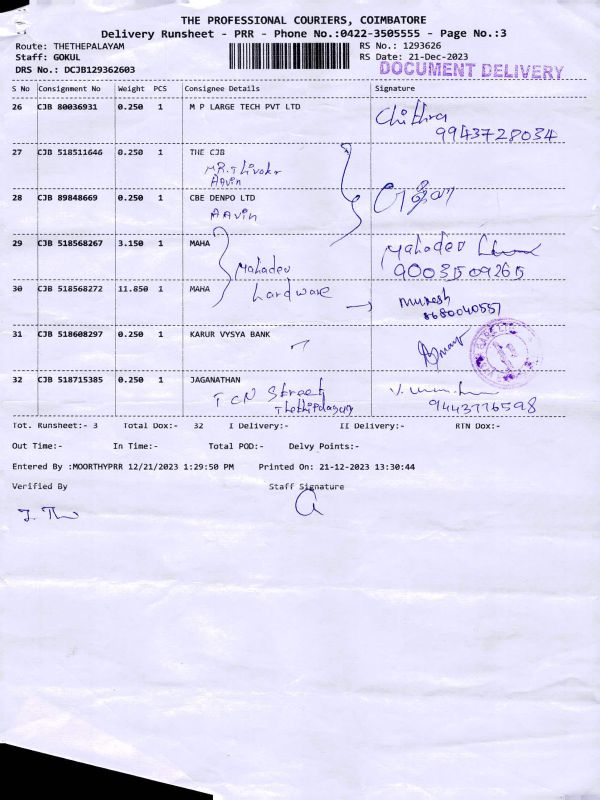 THE PROFESSIONAL COURIERS, COIMBATORE
Delivery Runsheet - PRR - Phone No.:0422-3505555 - Page No.:3
Route: THETHEPALAYAM
RS No.: 1293626
Staff: GOKUL
RS Date: 21-Dec-2023
DRS No.: DCJB129362603
DOCUMENT DELIVERY
S No Consignment No Weight PCS Consignee Details Signature
26 CJB 80036931 0.250 1 M P LARGE TECH PVT LTD
Chithra
9943728034
27 CJB 518511646 0.250 1 THE CJB
MR.Thivakr
AAvin
28 CJB 89848669 0.250 1 CBE DENPO LTD
AAvin
29 CJB 518568267 3.150 1 MAHA
Mahadev
9003509265
Mahadev
30 CJB 518568272 11.850 1 MAHA
hardware
Muresh
8680040557
31 CJB 518608297 0.250 1 KARUR VYSYA BANK
32 CJB 518715385 0.250 1 JAGANATHAN
TCN Street
Thethipalayam
9443776598
Tot. Runsheet:- 3 Total Dox:- 32 I Delivery:- II Delivery:- RTN Dox:-
Out Time:- In Time:- Total POD:- Delvy Points:-
Entered By :MOORTHYPRR 12/21/2023 1:29:50 PM Printed On: 21-12-2023 13:30:44
Verified By Staff Signature